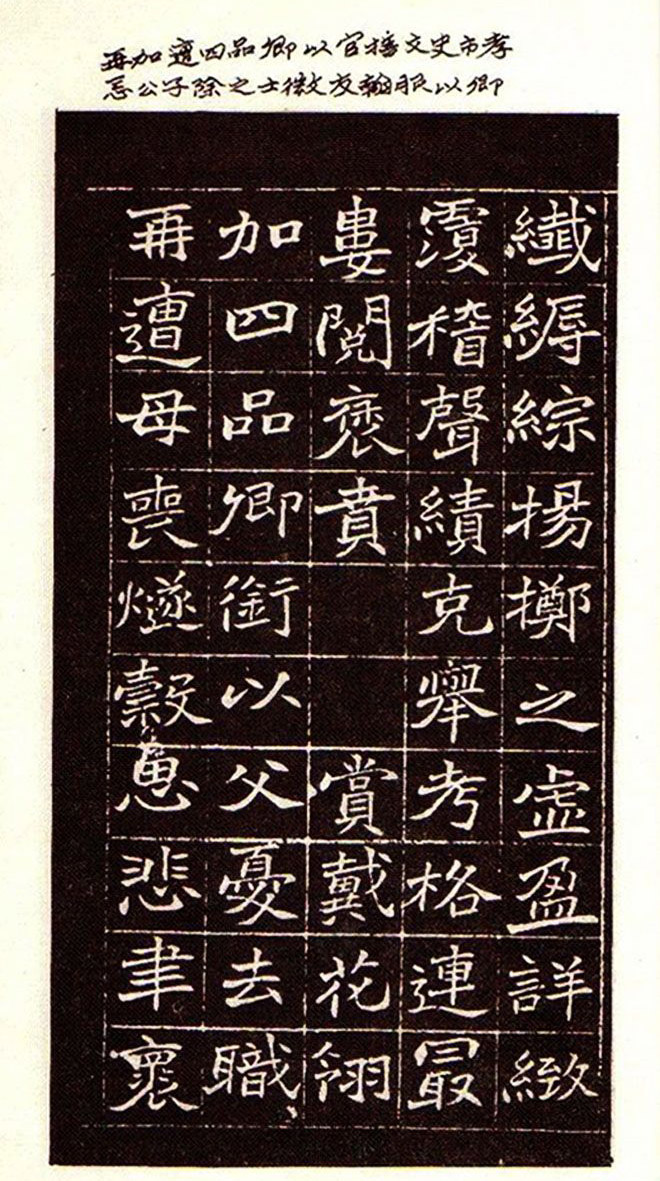 再加遭四品卿以官接文史市孝
忌公子除之士微友翰服以卿
纖縟綜揚擲之虛盈詳緻
覆稽聲績克舉考格連最
婁閱褒賁　　賞戴花翎
加四品卿銜以父憂去職
再遭母喪燧穀悤悲聿褱